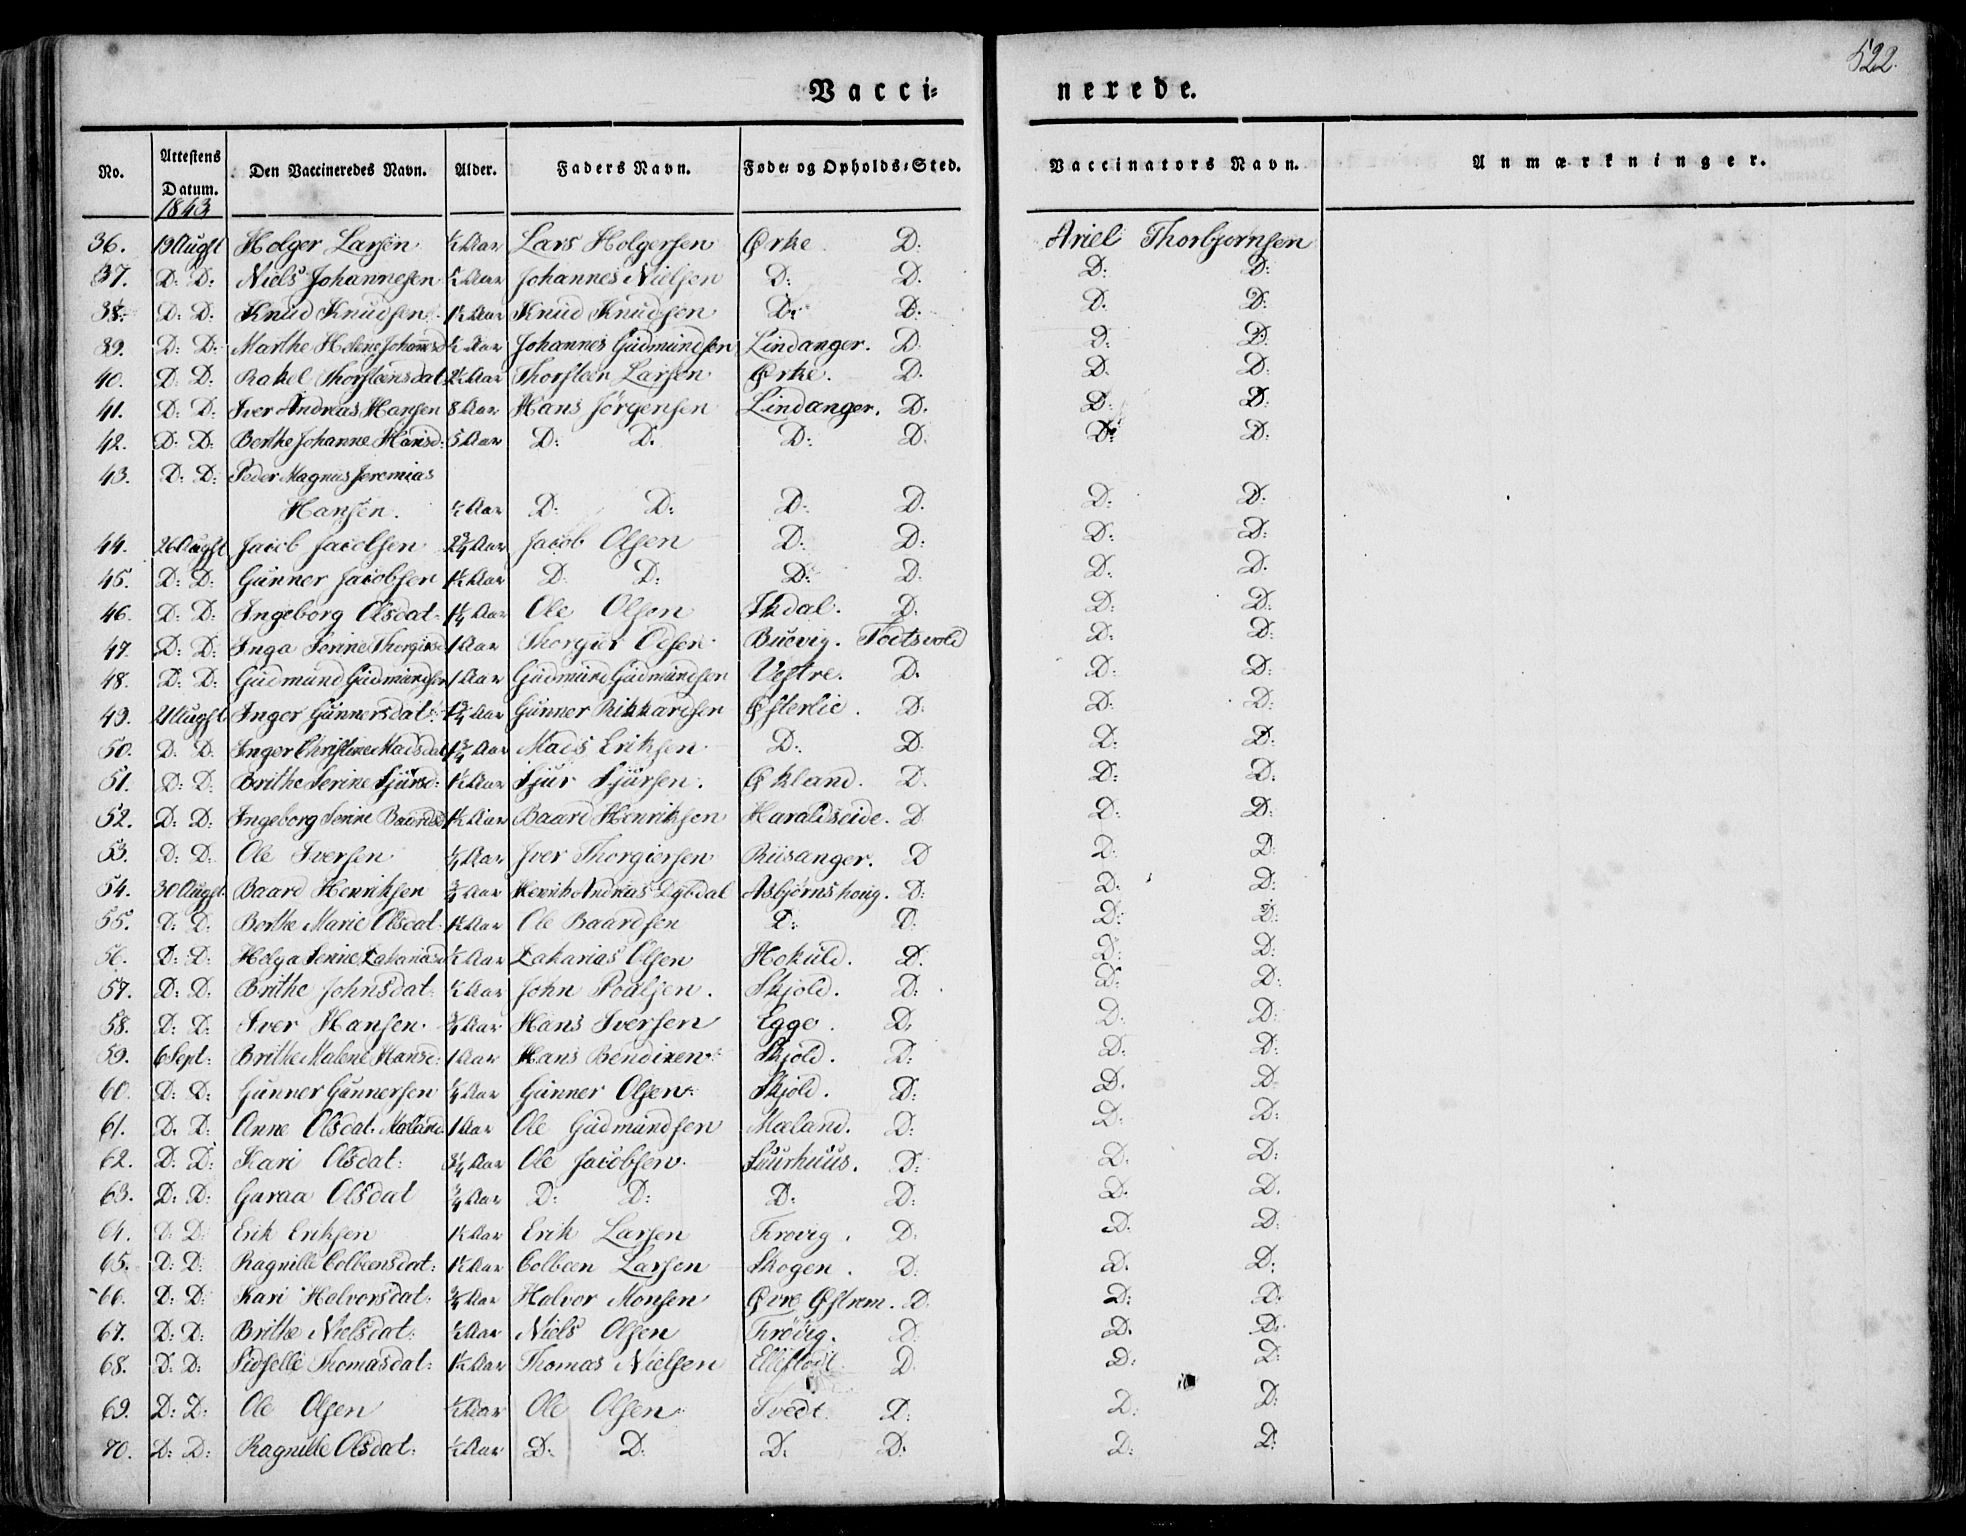 522.
Vacci= nerede.
No. Attestens Datum. Den Vaccineredes Navn. Alder. Faders Navn. Føde= og Opholds=Sted. Vaccinators Navn. Anmærkninger.
1843
36. 19 Augst Holger Larsen ½ Aar Lars Holgersen Ørke D: Ariel Thorbjørnsen
37. D: D: Niels Johannesen Aar Johannes Nielsen D: D. D: D:
38. D: D. Knud Knudsen 1½ Aar Knud Knudsen D: D. D. D:
39. D: D: Marthe Helene Johannesd ½ Aar Johannes Gudmundsen Lindanger. D. D: D.
40. D: D. Rakel Thorsteensdat 2½ Aar Thorsteen Larsen Ørke. D. D. D:
41. D: D: Iver Andreas Hansen 8 Aar Hans Jørgensen Lindanger. D. D: D:
42. D: D: Berthe Johanne Hansd: 5 Aar D: D. D: D. D: D:
43. D: D: Peder Magnus Jeremias
Hansen. ½ Aar D: D: D: D. D: D:
44. 26 Augst Jacob Jacobsen 2¾ Aar Jacob Olsen D: D: D: D:
45. D: D: Gunner Jacobsen 1½ Aar D: D: D: D. D: D.
46. D: D: Ingeborg Olsdat: 1¼ Aar Ole Olsen D. D: D:
47. D: D: Inga Serine Thorgiersd 1 Aar Buevig. D: D:
48. D: D: Gudmund Gudmundsen 1 Aar Gudmund Gudmundsen Vestre. D. D: D:
49. Augst Inger Gunnersdat: 1¾ Aar Gunner Rikkardsen Østerlie. D: D: D:
50. D. D. Inger Christine Madsdat 1¾ Aar Mads Eriksen D: D: D: D:
51. D: D: Brithe Serine Sjursd: 1½ Aar Sjur Sjursen. Økland. D. D: D:
52. D: D: Ingeborg Serine Baardsd 1½ Aar Baard Henriksen Haraldseide. D D: D:
53. D: D: Ole Iversen ¼ Aar Iver Thorgiersen Riisanger. D D: D:
54. 30 Augst. Baard Henriksen ¾ Aar Henrik Andreas Dybdal Asbjørnshoug. D: D. D:
55. D: D: Berthe Marie Olsdat: 1½ Aar Ole Baardsen D: D: D: D:
56. D: D: Helga Serine Zakariasd ½ Aar Zakarias Olsen Hokuld. D. D: D:
57. D: D. Brithe Johnsdat: ½ Aar John Poulsen. Skjold. D: D: D:
58. D: D: Iver Hansen. ¾ Aar Hans Iversen Egge. D. D: D:
59. 6 Sept: Brithe Malene Hansd: 1 Aar Hans Bendixen Skjold. D: D: D:
60. D: D: Gunner Gunnersen ¼ Aar Gunner Olsen Skjold. D: D. D:
61. D. D: Anne Olsdat: Mæland. 1 Aar Ole Gudmundsen Mæland. D: D: D:
62. D: D: Kari Olsdat: 3¼ Aar Ole Jacobsen. Suurhuus. D: D. D:
63. D: D: Garaa Olsdat ¾ Aar D: D: D: D: D. D.
64. D: D: Erik Eriksen 1½ Aar Erik Larsen Krøvig. D: D. D:
65. D: D: Ragnille Colbeensdat: 1½ Aar Colbeen Larsen Skogen. D: D. D:
66. D: D: Kari Halvorsdat: ¾ Aar Halvor Monsen Øvre Østrem. D: D: D:
67. D: D: Brithe Nielsdat: ½ Aar Niels Olsen Krøvig. D: D. D:
68. D: D: Sidselle Thomasdat: 1½ Aar Thomas Nielsen D. D: D:
69. D: D: Ole Olsen ½ Aar Ole Olsen Tvedt. D: D: D:
70. D: D: Ragnille Olsdat: ½ Aar D: D: D: D: D: D: